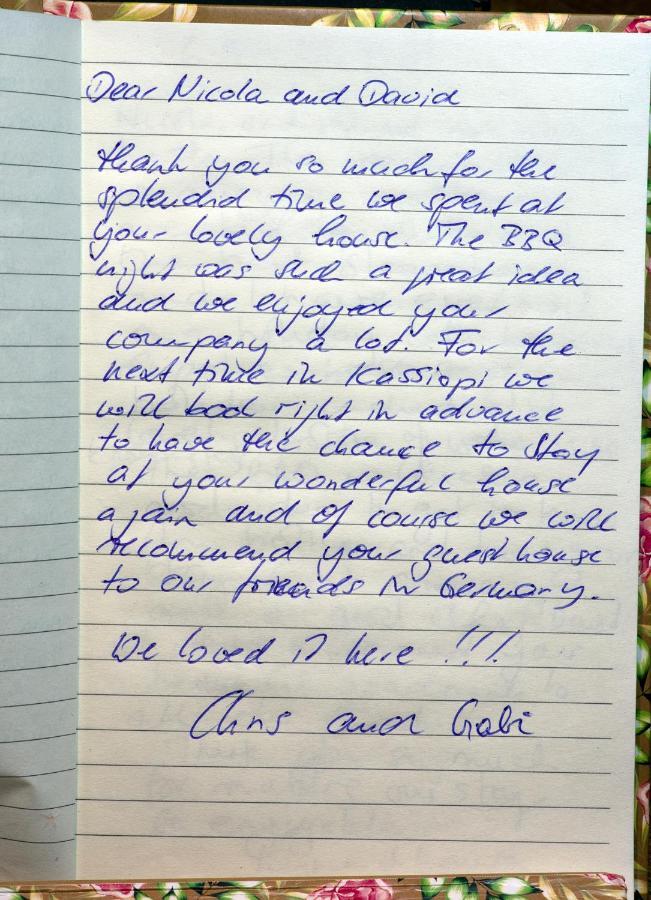 Dear Nicola and David
thank you so much for the
splendid time we spent at
your lovely house. The BBQ
night was such a great idea
and we enjoyed your
company a lot. For the
next time in Kassiopi we
will book right in advance
to have the chance to stay
at your wonderful house
again and of course we will
recommend your guesthouse
to our friends in Germany.
We loved it here !!!
Chris and Gabi